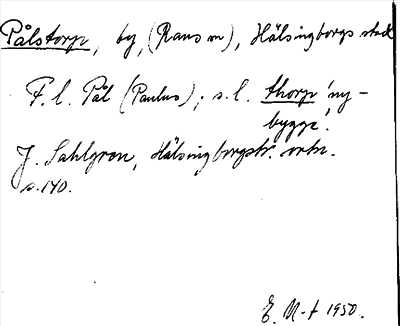 Pålstorp, by, (Raus sn), Hälsingborgs stad
F. l. Pål (Paulus); s. l. thorp 'ny-
bygge'.
J. Sahlgren, Hälsingborgstr. ortn.
s. 140.
E. M-t 1950.